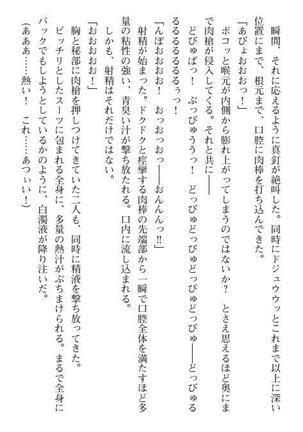 瞬間、それに応えるように真釘が絶叫した。同時にドジュウウッとこれまで以上に深い
位置にまで、根元まで、口腔に肉棒を打ち込んできた。
「あぴょおおおっ！」
ボコッと喉元が内側から膨れ上がってしまうのではないか？　とさえ思えるほど奥にま
で肉槍が侵入してくる。それと共に――
どびゅばっ！　ぶっびゅううっ！　どっびゅどっびゅどっびゅどっびゅ――どっびゅる
るるるるるるぅっ！
「んぼおおおおっ！　おっおっ――おんんんっ‼」
射精が始まった。ドクドクと痙攣する肉棒の先端部から一瞬で口腔全体を満たすほど多
量の粘性の強い、青臭い汁が撃ち放たれる。口内に流し込まれる。
しかも、射精はそれだけではない。
「おおおおお！」
胸と秘部に肉槍を押しつけてきていた二人も、同時に精液を撃ち放ってきた。
ピッチリとしたスーツに包まれる全身に、多量の熱汁がぶちまけられる。まるで全身に
パックでもしようとしているかのように、白濁液が降り注いだ。
（あああ……熱い！　これ……あつぃい！